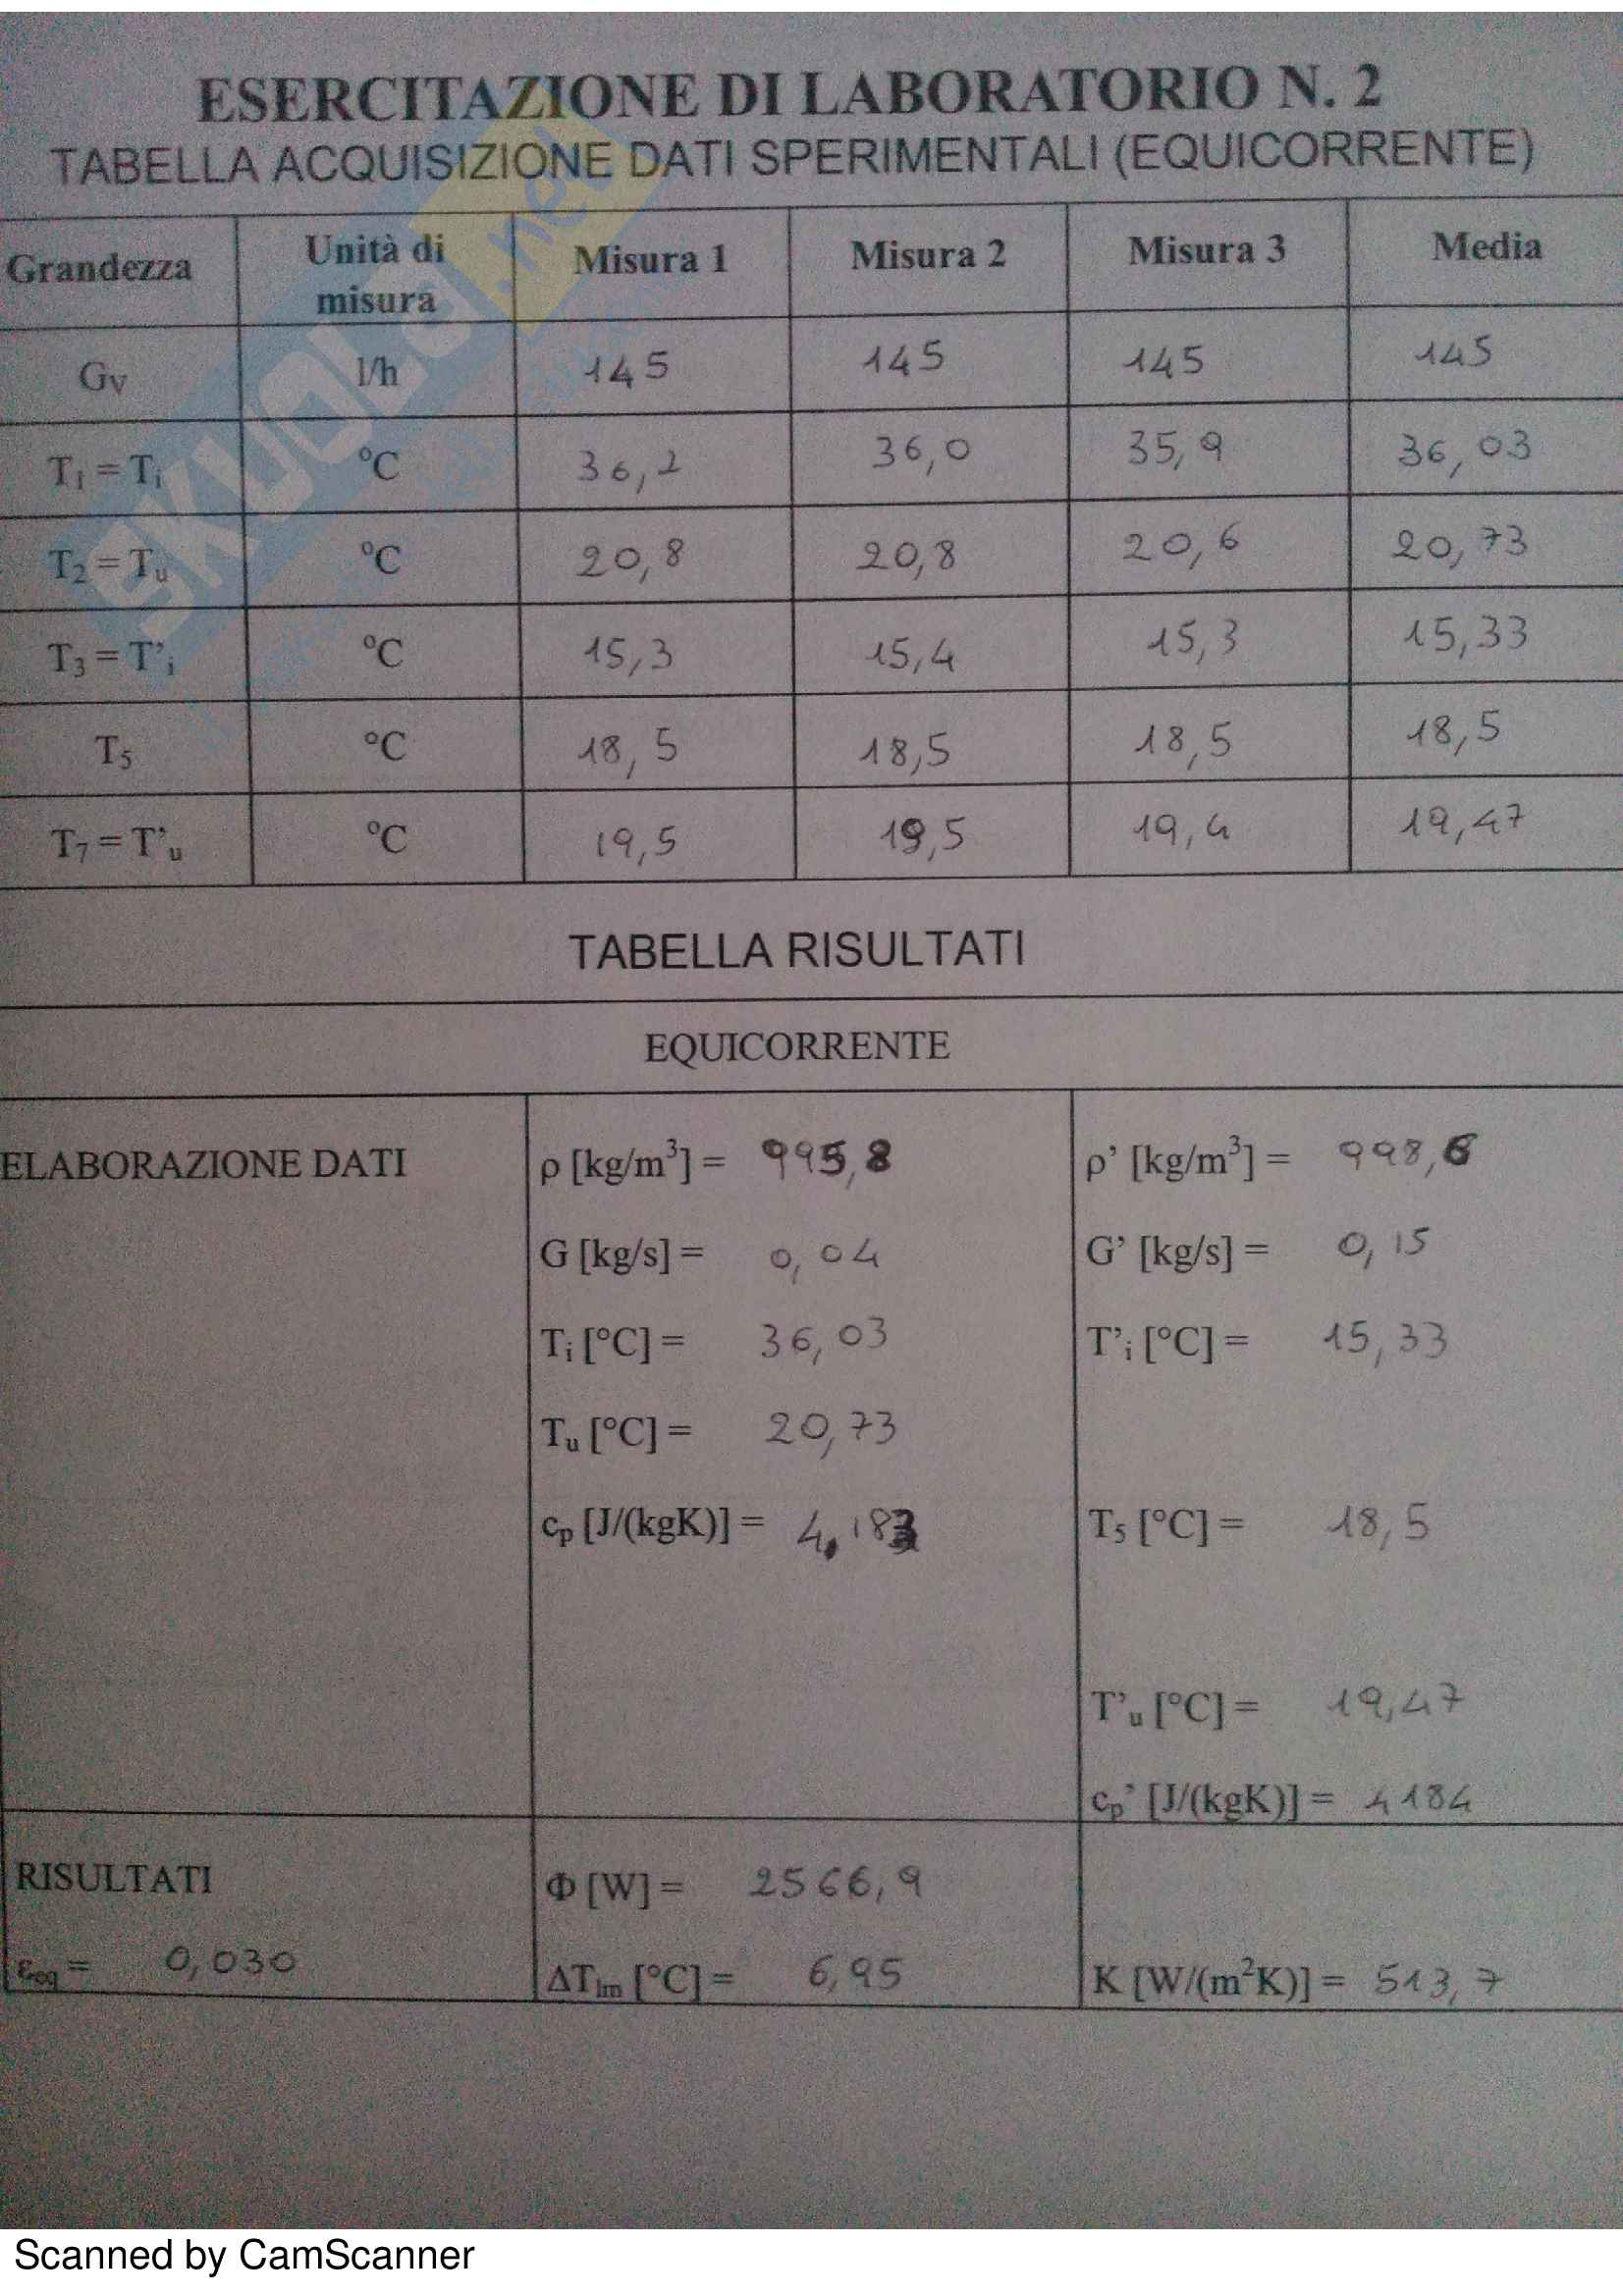 ESERCITAZIONE DI LABORATORIO N. 2
TABELLA ACQUISIZIONE DATI SPERIMENTALI (EQUICORRENTE)
Grandezza Unità di misura Misura 1 Misura 2 Misura 3 Media
Gv l/h 145 145 145 145
T₁ = Tᵢ °C 36,2 36,0 35,9 36,03
T₂ = Tᵤ °C 20,8 20,8 20,6 20,73
T₃ = T'ᵢ °C 15,3 15,4 15,3 15,33
T₅ °C 18,5 18,5 18,5 18,5
T₇ = T'ᵤ °C 19,5 19,5 19,4 19,47
SKUOLA.net
TABELLA RISULTATI
EQUICORRENTE
ELABORAZIONE DATI ρ [kg/m³] = 995,8 ρ' [kg/m³] = 998,6
G [kg/s] = 0,04 G' [kg/s] = 0,15
Tᵢ [°C] = 36,03 T'ᵢ [°C] = 15,33
Tᵤ [°C] = 20,73
cₚ [J/(kgK)] = 4,183 T₅ [°C] = 18,5
T'ᵤ [°C] = 19,47
cₚ' [J/(kgK)] = 4184
RISULTATI Φ [W] = 2566,9
εeq = 0,030 ΔTlm [°C] = 6,95 K [W/(m²K)] = 513,7
Scanned by CamScanner